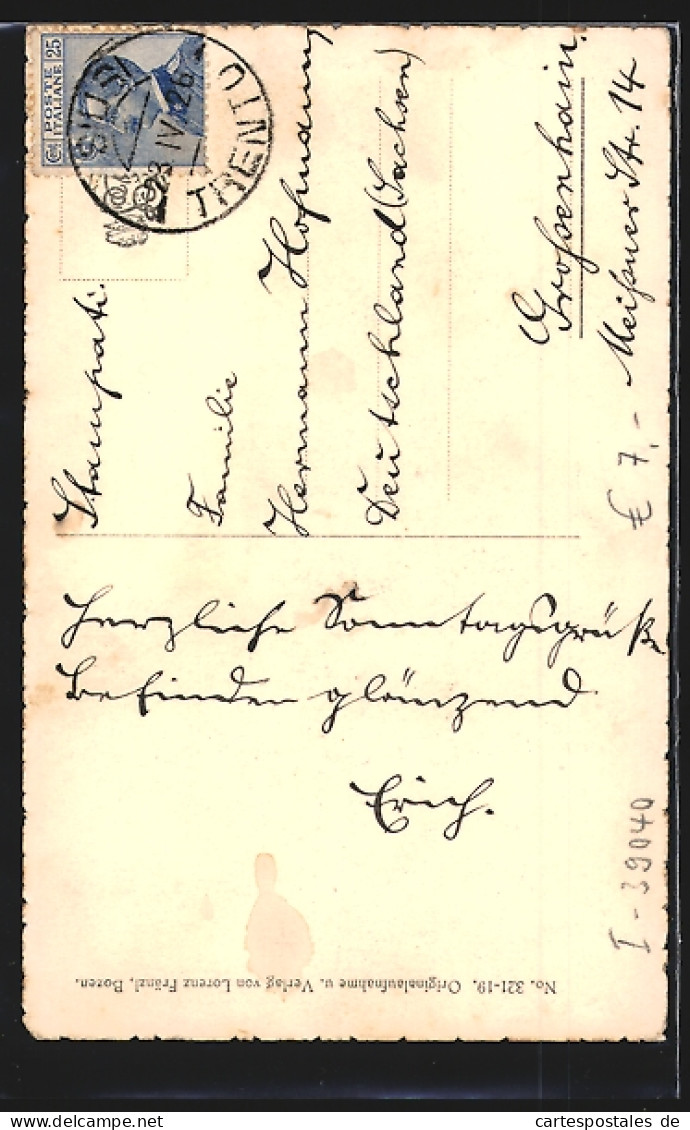 25
POSTE
ITALIANE
TRENTO
IV 26
Stampati.
Familie
Hermann Hofmann
Deutschland (Sachsen)
Grossenhain.
Meißner Str. 14
€ 7,-
Herzliche Sonntagsgrüße
Befinden glänzend
Erich.
I-39040
No. 321-19. Originalaufnahme u. Verlag von Lorenz Fränzl, Bozen.
cartespostales de delcampe.net